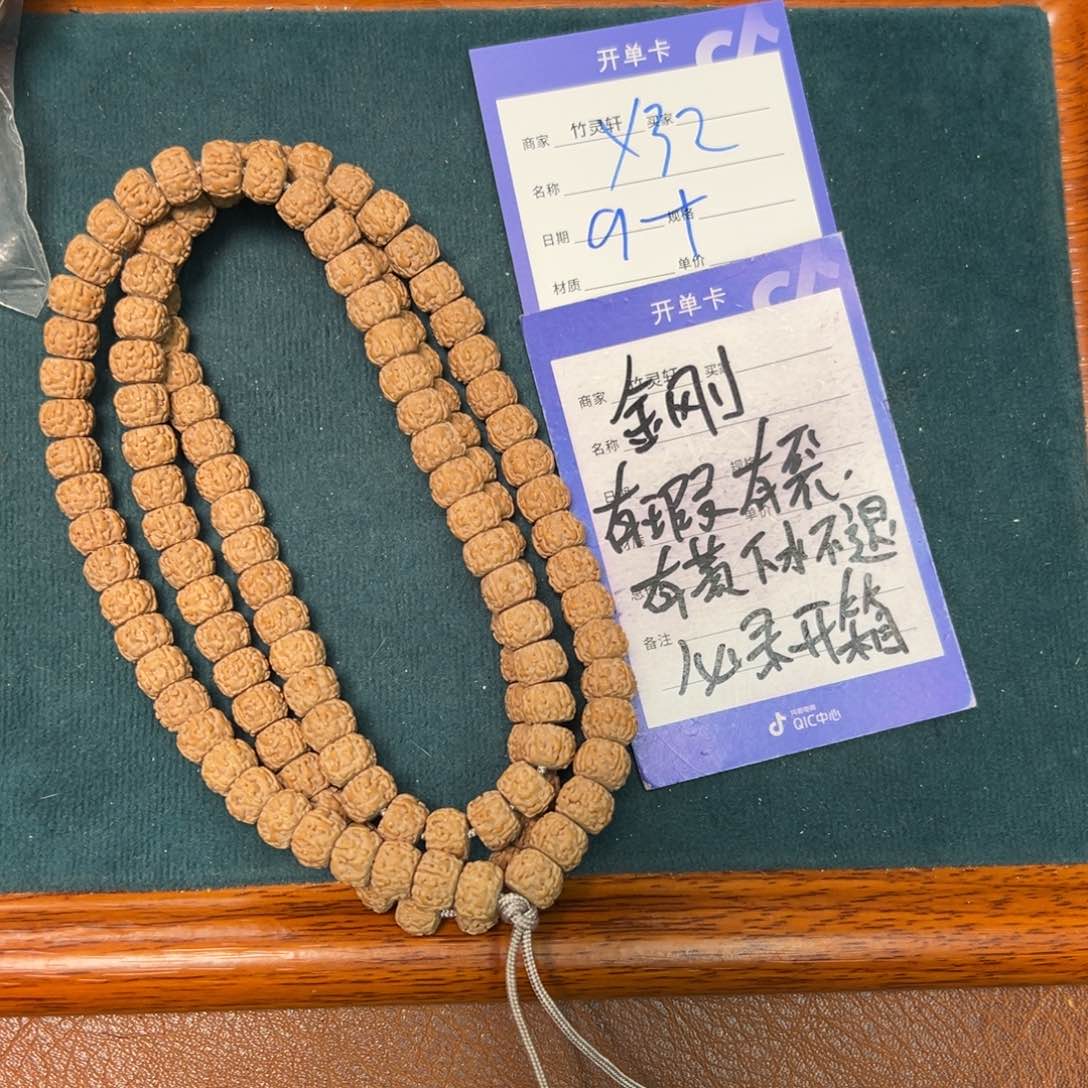 开单卡
商家 竹灵轩 买家
Y32
名称
日期 9十 规格
材质 单价
开单卡
商家 竹灵轩 买家
金刚
名称
有瑕 有裂.
有黄 下水不退
备注
必录开箱
抖音电商
QIC中心